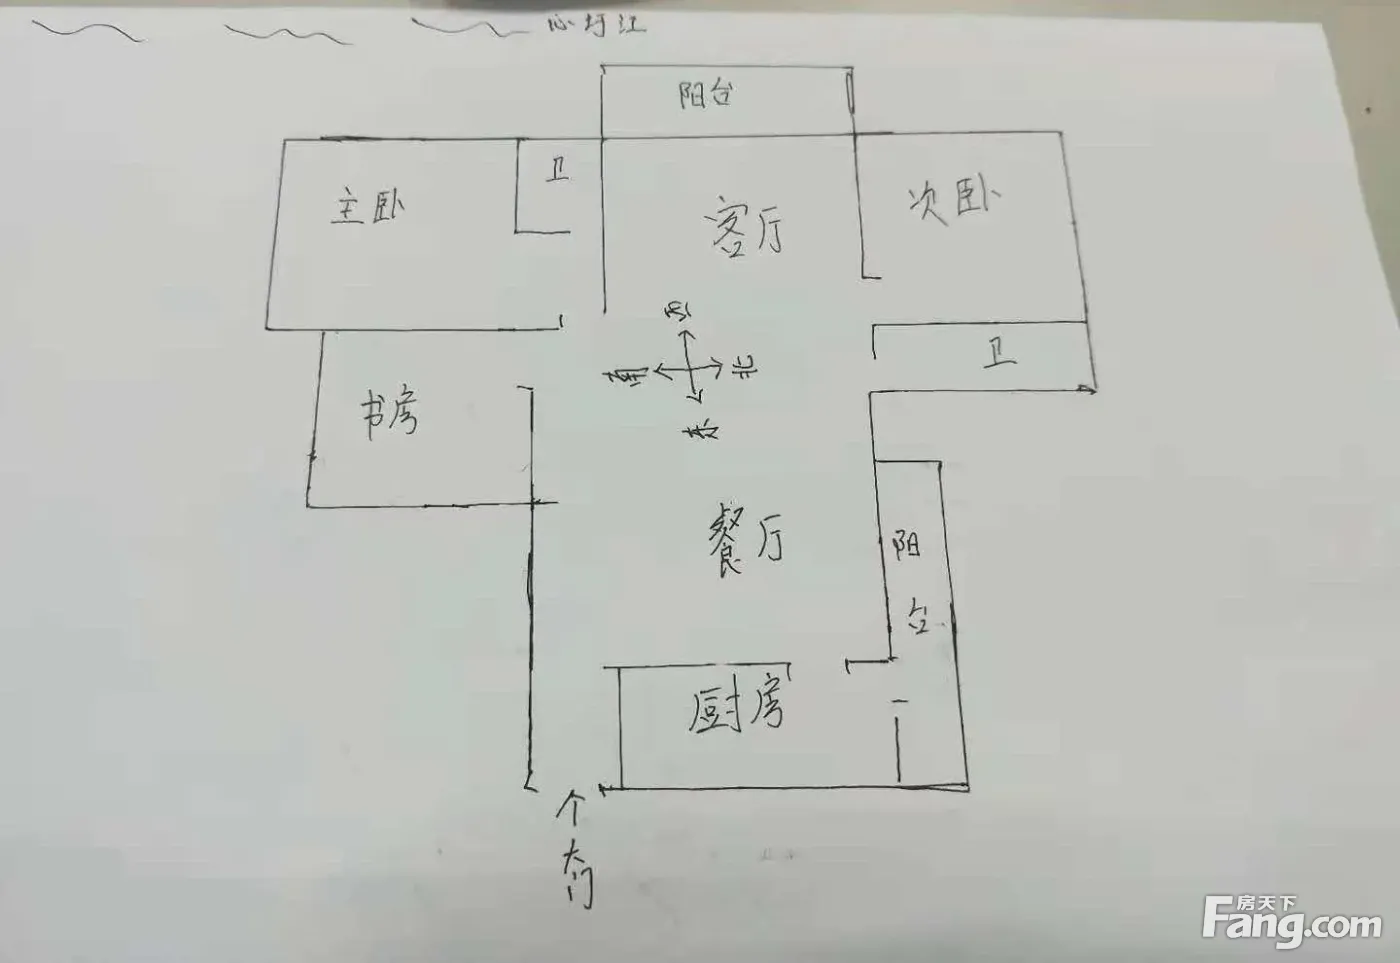 心圩江
阳台
主卧
卫
客厅
次卧
西
南
北
东
卫
书房
餐厅
阳
台
厨房
个
大门
房天下
Fang.com